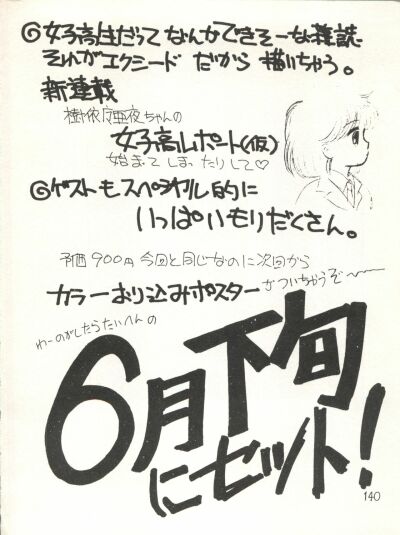 ◎女子高生だってなんかできそーな雑誌
それがエクシード だから 描いちゃう。
新連載
樹依庫亜夜ちゃんの
女子高レポート(仮)
始まってしまったりして♡
◎ゲストもスペシャル的に
いっぱいもりだくさん。
予価900円 今回と同じなのに次回から
カラーおり込みポスターがついちゃうぞ〜〜
わーのがしたらたいへんの
6月下旬
にセット!
140